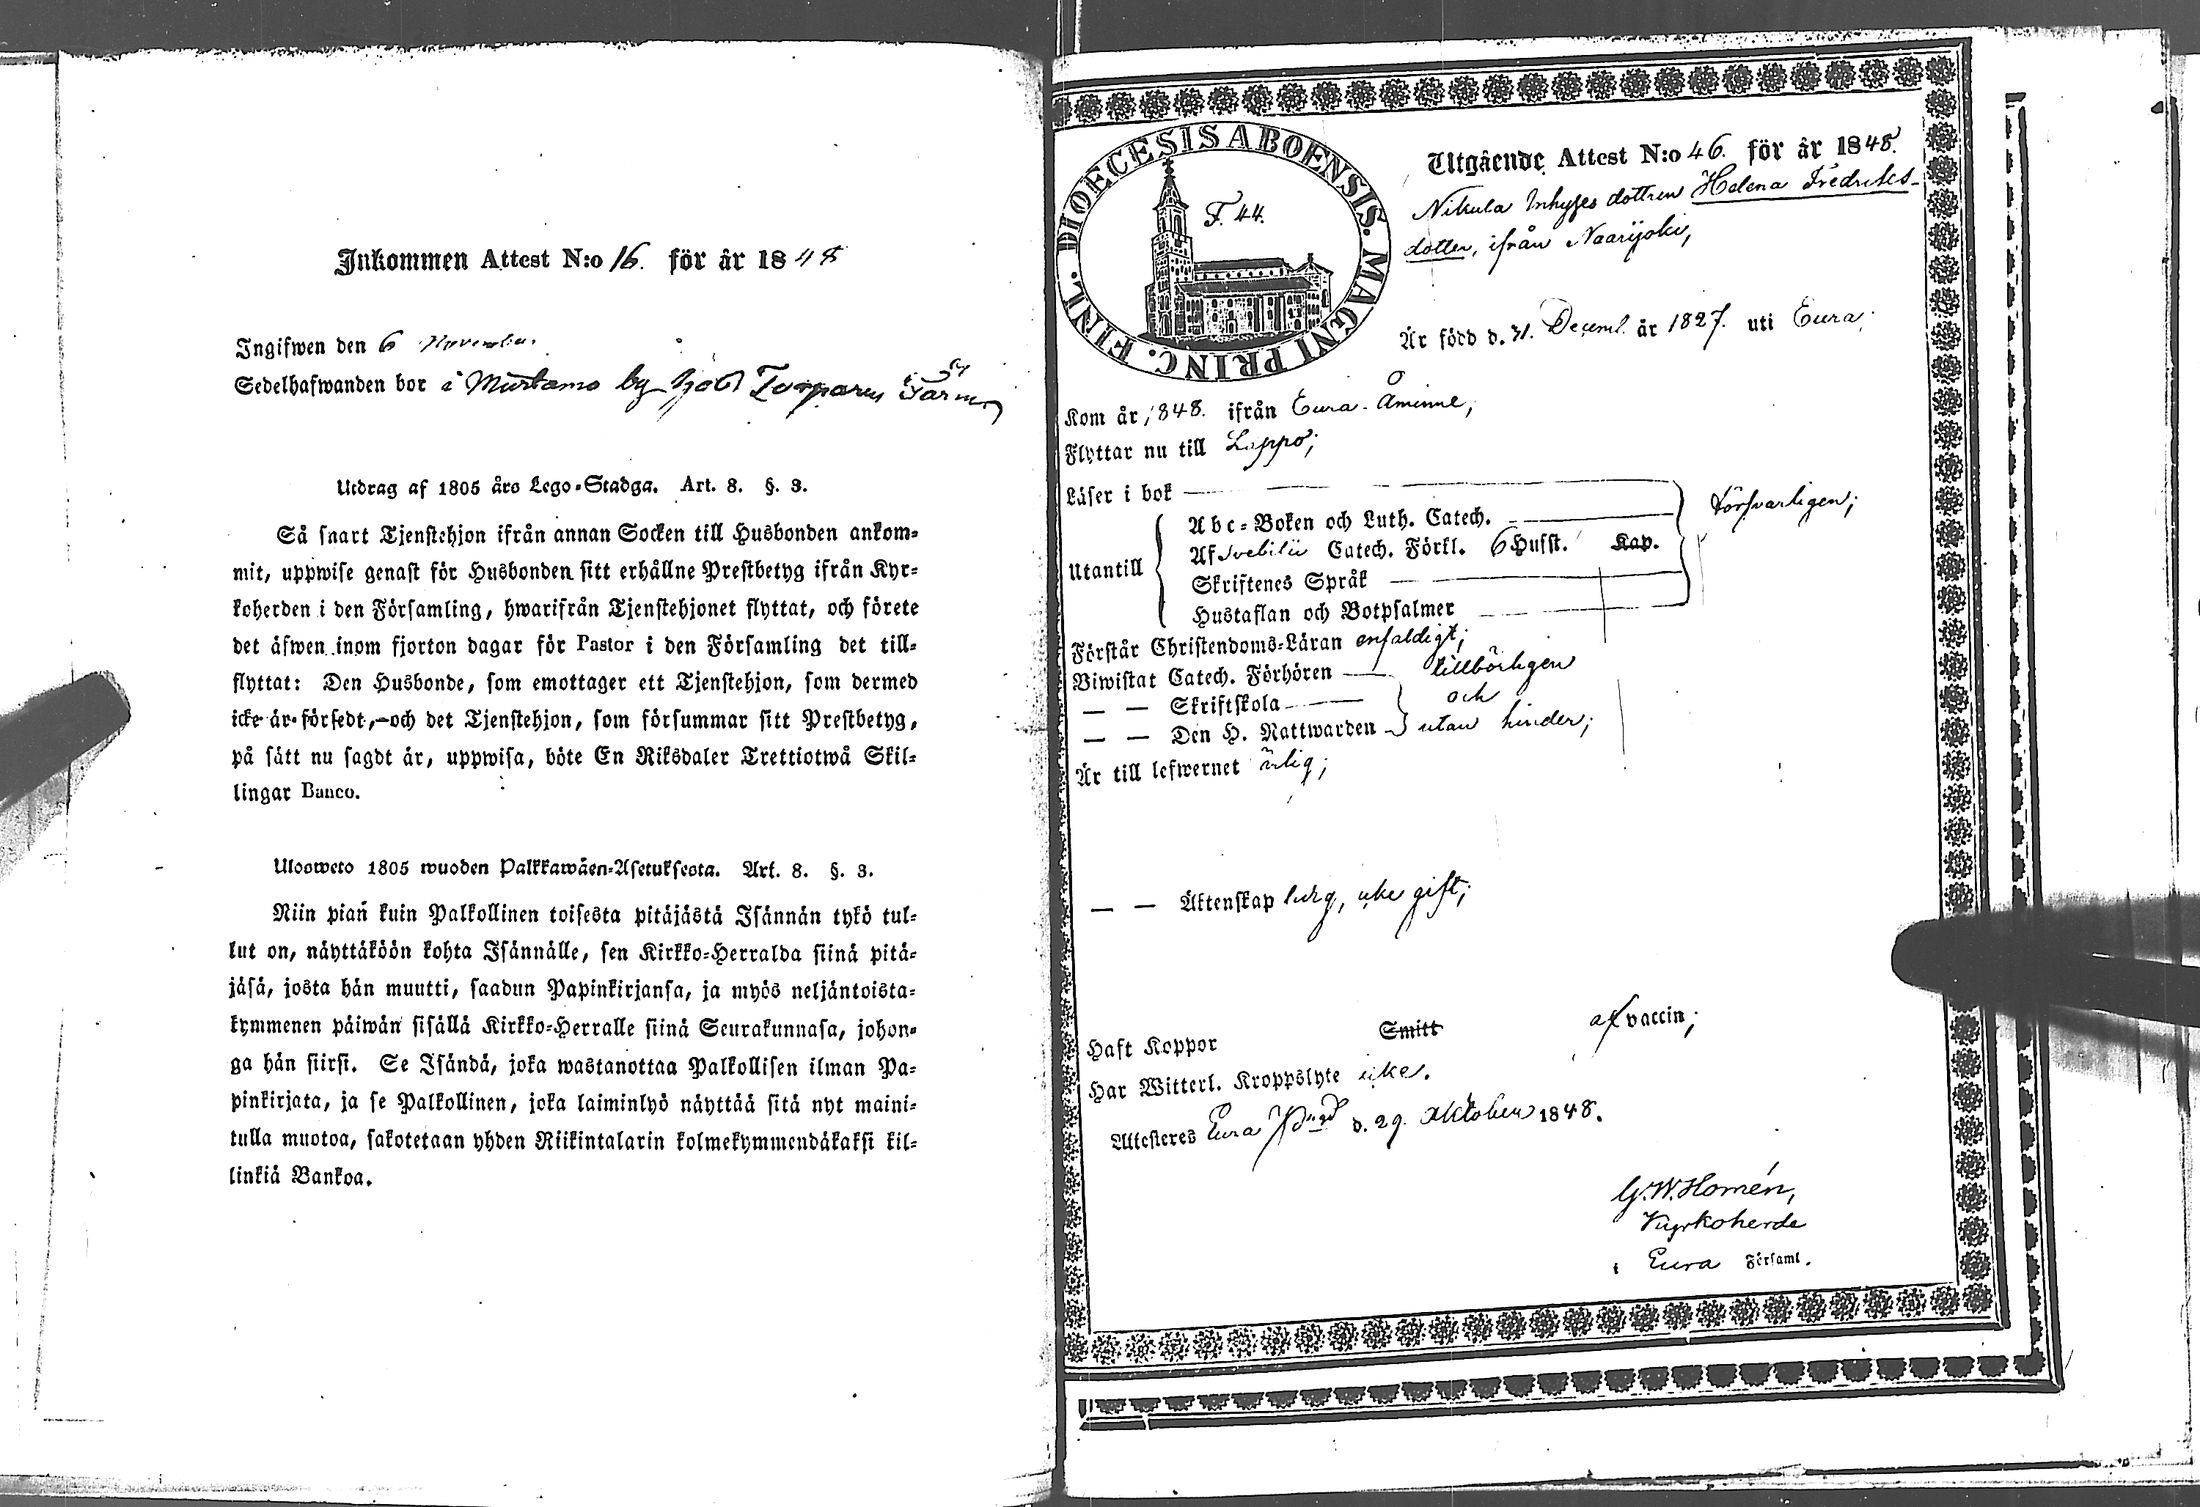 Inkommen Attest N:o 16. för år 1848
Ingifwen den 6 November
Sedelhafwanden bor i Murtamo by
Utdrag af 1805 års Lego-Stadga. Art. 8. §. 3.
Så snart Tjenstehjon ifrån annan Socken till Husbonden ankom-
mit, uppwise genast för Husbonden sitt erhållne Prestbetyg ifrån Kyr-
koherden i den Församling, hwarifrån Tjenstehjonet flyttat, och förete
det äfwen inom fjorton dagar för Pastor i den Församling det till-
flyttat: Den Husbonde, som emottager ett Tjenstehjon, som dermed
icke är försedt, och det Tjenstehjon, som försummar sitt Prestbetyg,
på sätt nu sagdt är, uppwisa, böte En Riksdaler Trettiotwå Skil-
lingar Banco.
Ulosweto 1805 wuoden Palkkawäen-Asetuksesta. Art. 8. §. 3.
Niin pian kuin Palkollinen toisesta pitäjästä Isännän tykö tul-
lut on, näyttäköön kohta Isännälle, sen Kirkko-Herralda siinä pitä-
jäsä, josta hän muutti, saadun Papinkirjansa, ja myös neljäntoista-
kymmenen päiwän sisällä Kirkko-Herralle siinä Seurakunnasa, johon-
ga hän siirsi. Se Isändä, joka wastanottaa Palkollisen ilman Pa-
pinkirjata, ja se Palkollinen, joka laiminlyö näyttää sitä nyt maini-
tulla muotoa, sakotetaan yhden Riikintalarin kolmekymmendäkaksi kil-
linkiä Bankoa.
DIOECESIS ABOENSIS. MAGNI PRINC. FINL.
F. 44.
Utgående Attest N:o 46. för år 1848.
Nikula Inhyses dottren Helena Fredriks-
dotter, ifrån Naarijoki,
Är född d. 31. Decemb. år 1827. uti Eura;
Kom år 1848. ifrån Eura-Åminne,
Flyttar nu till Lappo;
Läser i bok
Utantill
Abc-Boken och Luth. Catech.
Af Svebilii Catech. Förkl. 6 Husst. Kap.
Skriftenes Språk
Hustaflan och Botpsalmer
försvarligen;
Förstår Christendoms-Läran enfaldigt;
Biwistat Catech. Förhören
— — Skriftskola
— — Den H. Nattwarden
tillbörligen
och
utan hinder;
Är till lefwernet ärlig;
— — Äktenskap ledig, icke gift;
Haft Koppor Smitt af vaccin;
Har Witterl. Kroppslyte icke.
Attesteres Eura d. 29. Oktober 1848.
G. W. Homén,
Kyrkoherde
i Eura Församl.